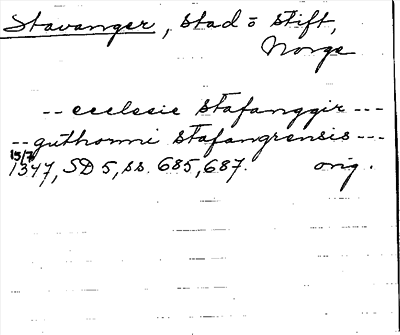 Stavanger, stad o stift,
Norge
-- ecclesie Stafanggir ---
-- guthormi Stafangrensis ---
15/7
1347, SD 5, ss. 685, 687. orig.